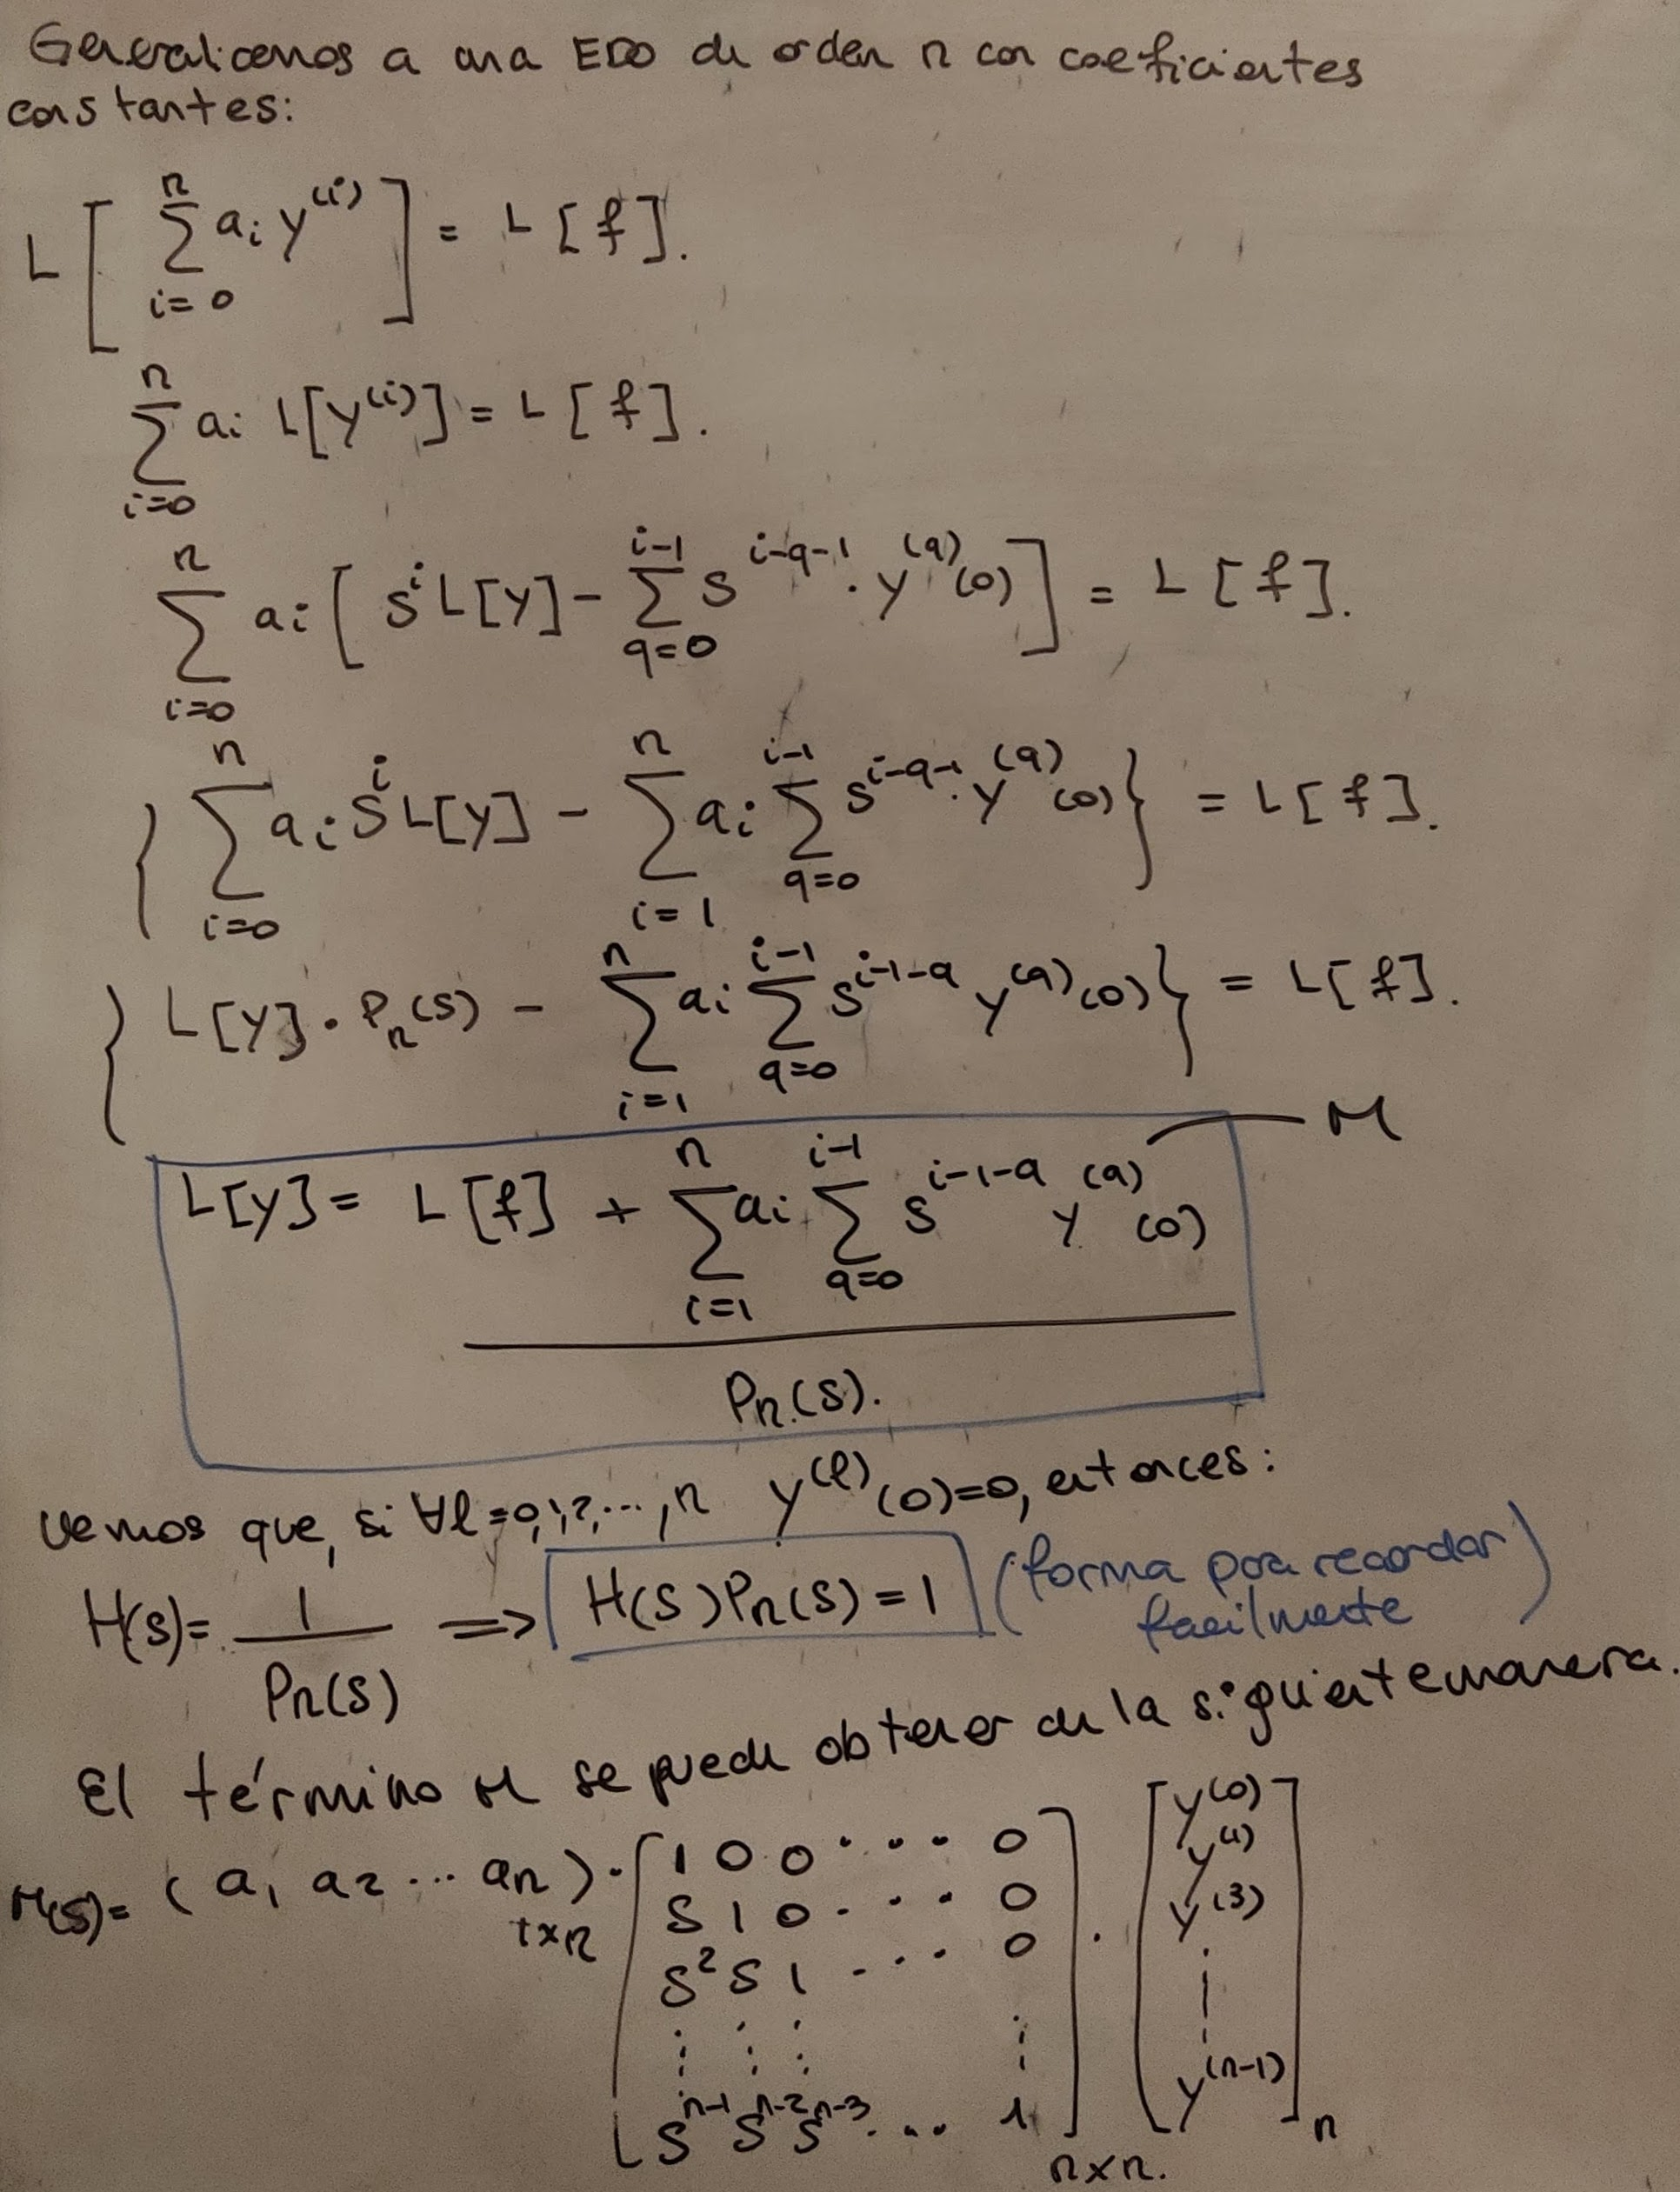 Generalicemos a una EDO de orden n con coeficientes
constantes:
L[ ∑_{i=0}^{n} a_i y^{(i)} ] = L[f].
∑_{i=0}^{n} a_i L[y^{(i)}] = L[f].
∑_{i=0}^{n} a_i [ s^i L[y] - ∑_{q=0}^{i-1} s^{i-q-1} · y^{(q)}(0) ] = L[f].
{ ∑_{i=0}^{n} a_i s^i L[y] - ∑_{i=1}^{n} a_i ∑_{q=0}^{i-1} s^{i-q-1} · y^{(q)}(0) } = L[f].
{ L[y] · P_n(s) - ∑_{i=1}^{n} a_i ∑_{q=0}^{i-1} s^{i-1-q} y^{(q)}(0) } = L[f].
M
L[y] = L[f] + ∑_{i=1}^{n} a_i ∑_{q=0}^{i-1} s^{i-1-q} y^{(q)}(0)
P_n(s).
Vemos que, si ∀l=0,1,2,...,n y^{(l)}(0)=0, entonces:
H(s) = 1 / P_n(s) ⟹ H(s)P_n(s) = 1 (forma para recordar
facilmente)
El término M se puede obtener de la siguiente manera.
M(s) = (a_1 a_2 ... a_n)_{1×n} · [ 1 0 0 ... 0
s 1 0 ... 0
s^2 s 1 ... 0
⋮ ⋮ ⋮ ⋮
s^{n-1} s^{n-2} s^{n-3} ... 1 ]_{n×n.} · [ y^{(0)}
y^{(1)}
y^{(3)}
⋮
y^{(n-1)} ]_n